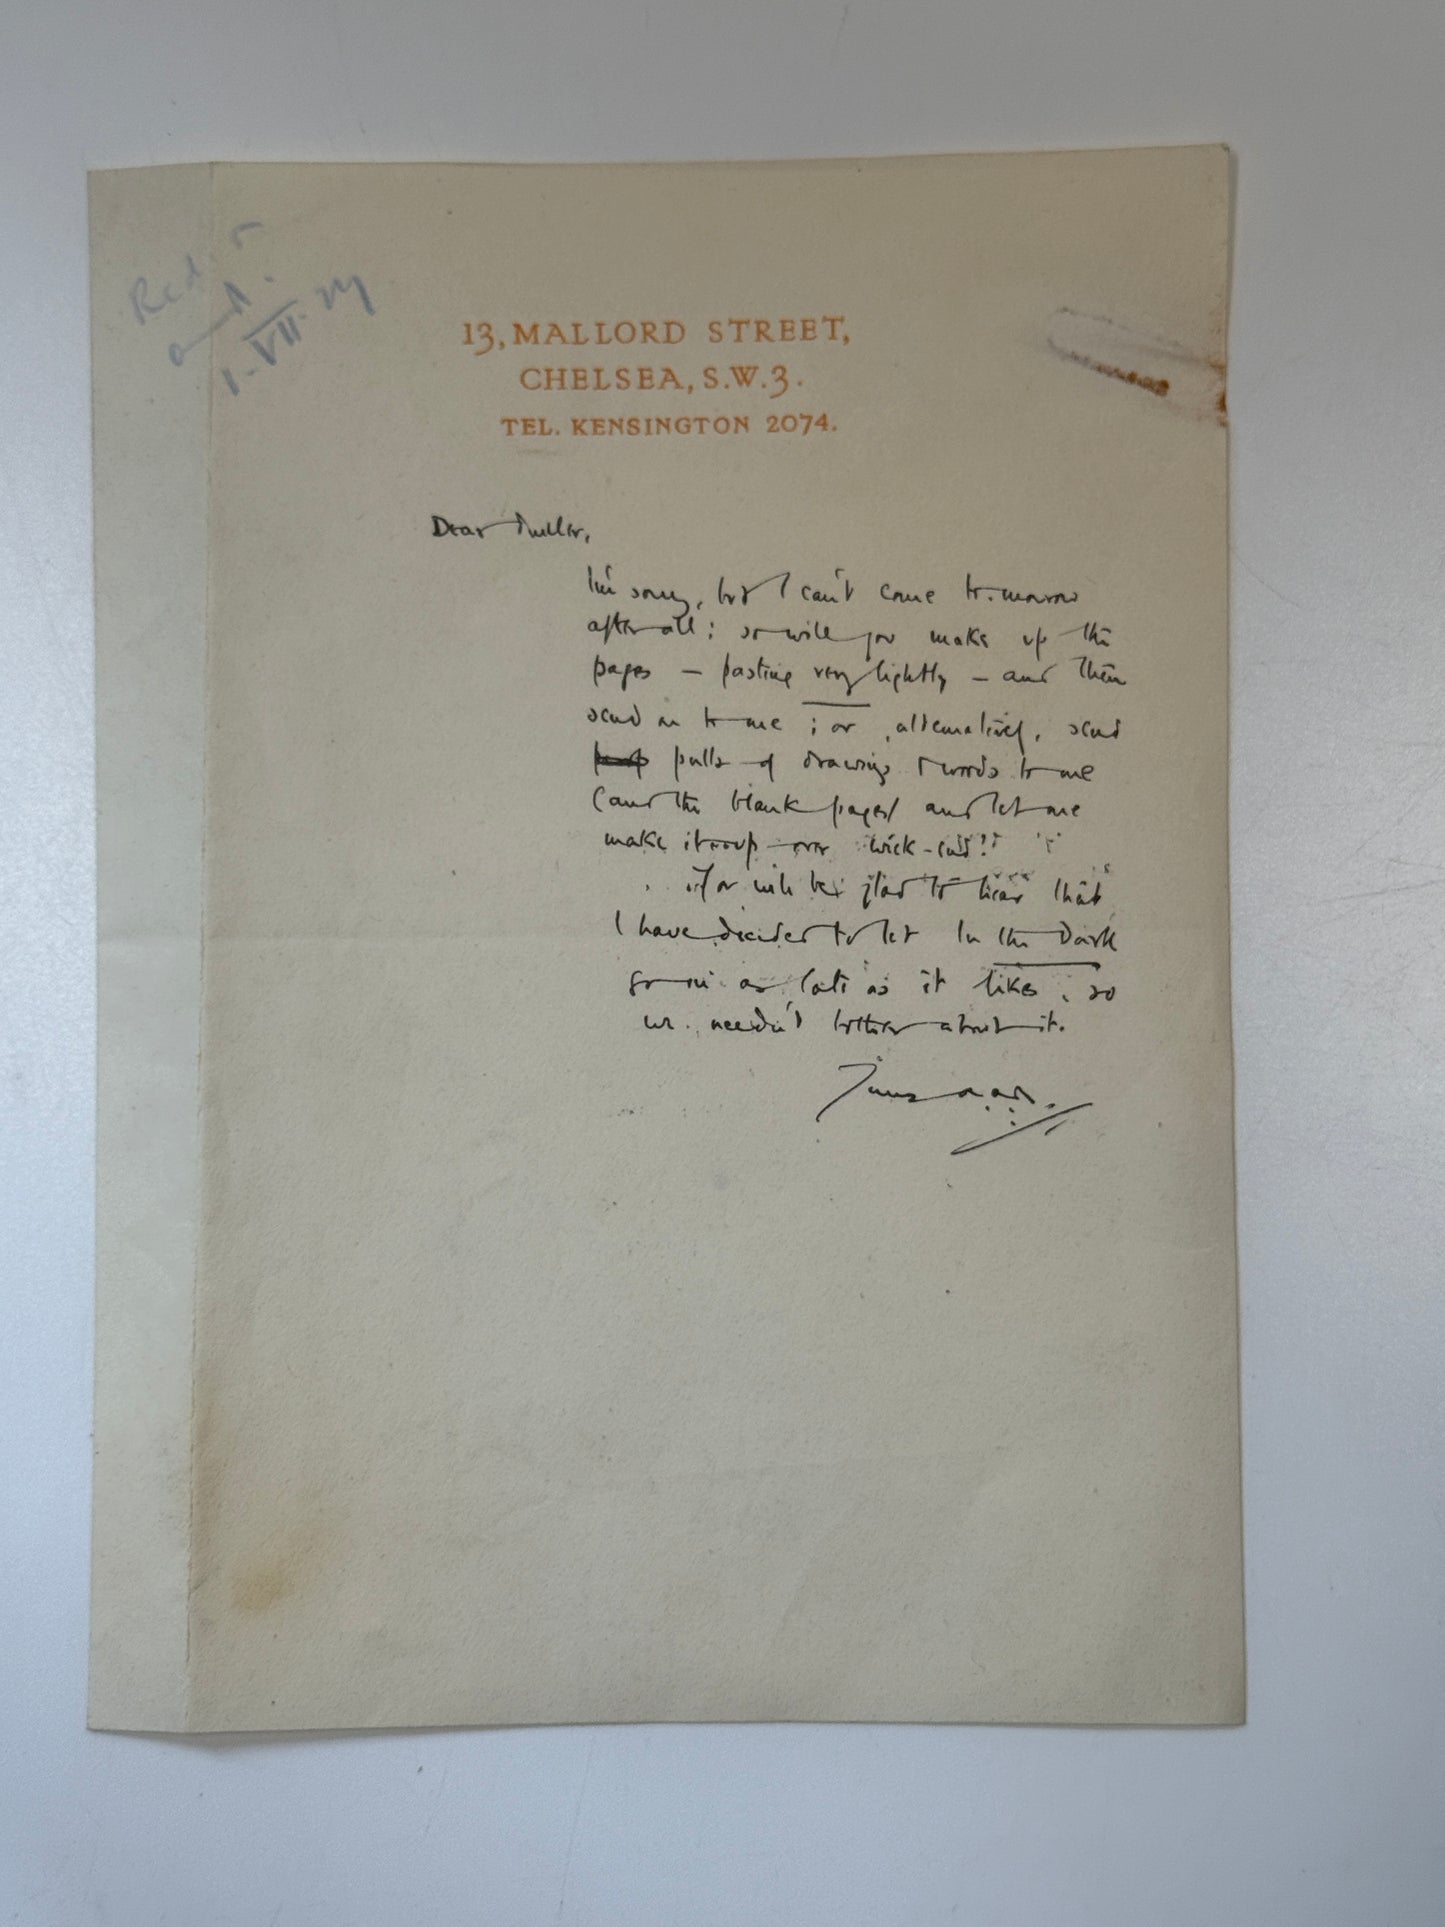 Recd &
1-VII-27
13, MALLORD STREET,
CHELSEA, S.W.3.
TEL. KENSINGTON 2074.
Dear Muller,
I'm sorry, but I can't come to-morrow
after all; so will you make up the
pages — pasting very lightly — and then
send on to me; or, alternatively, send
pulls of drawings & words to me
(and the blank pages) and let me
make it up over week-end?
You will be glad to hear that
I have decided to let In the Dark
go in as late as it likes, so
we needn't bother about it.
Yours